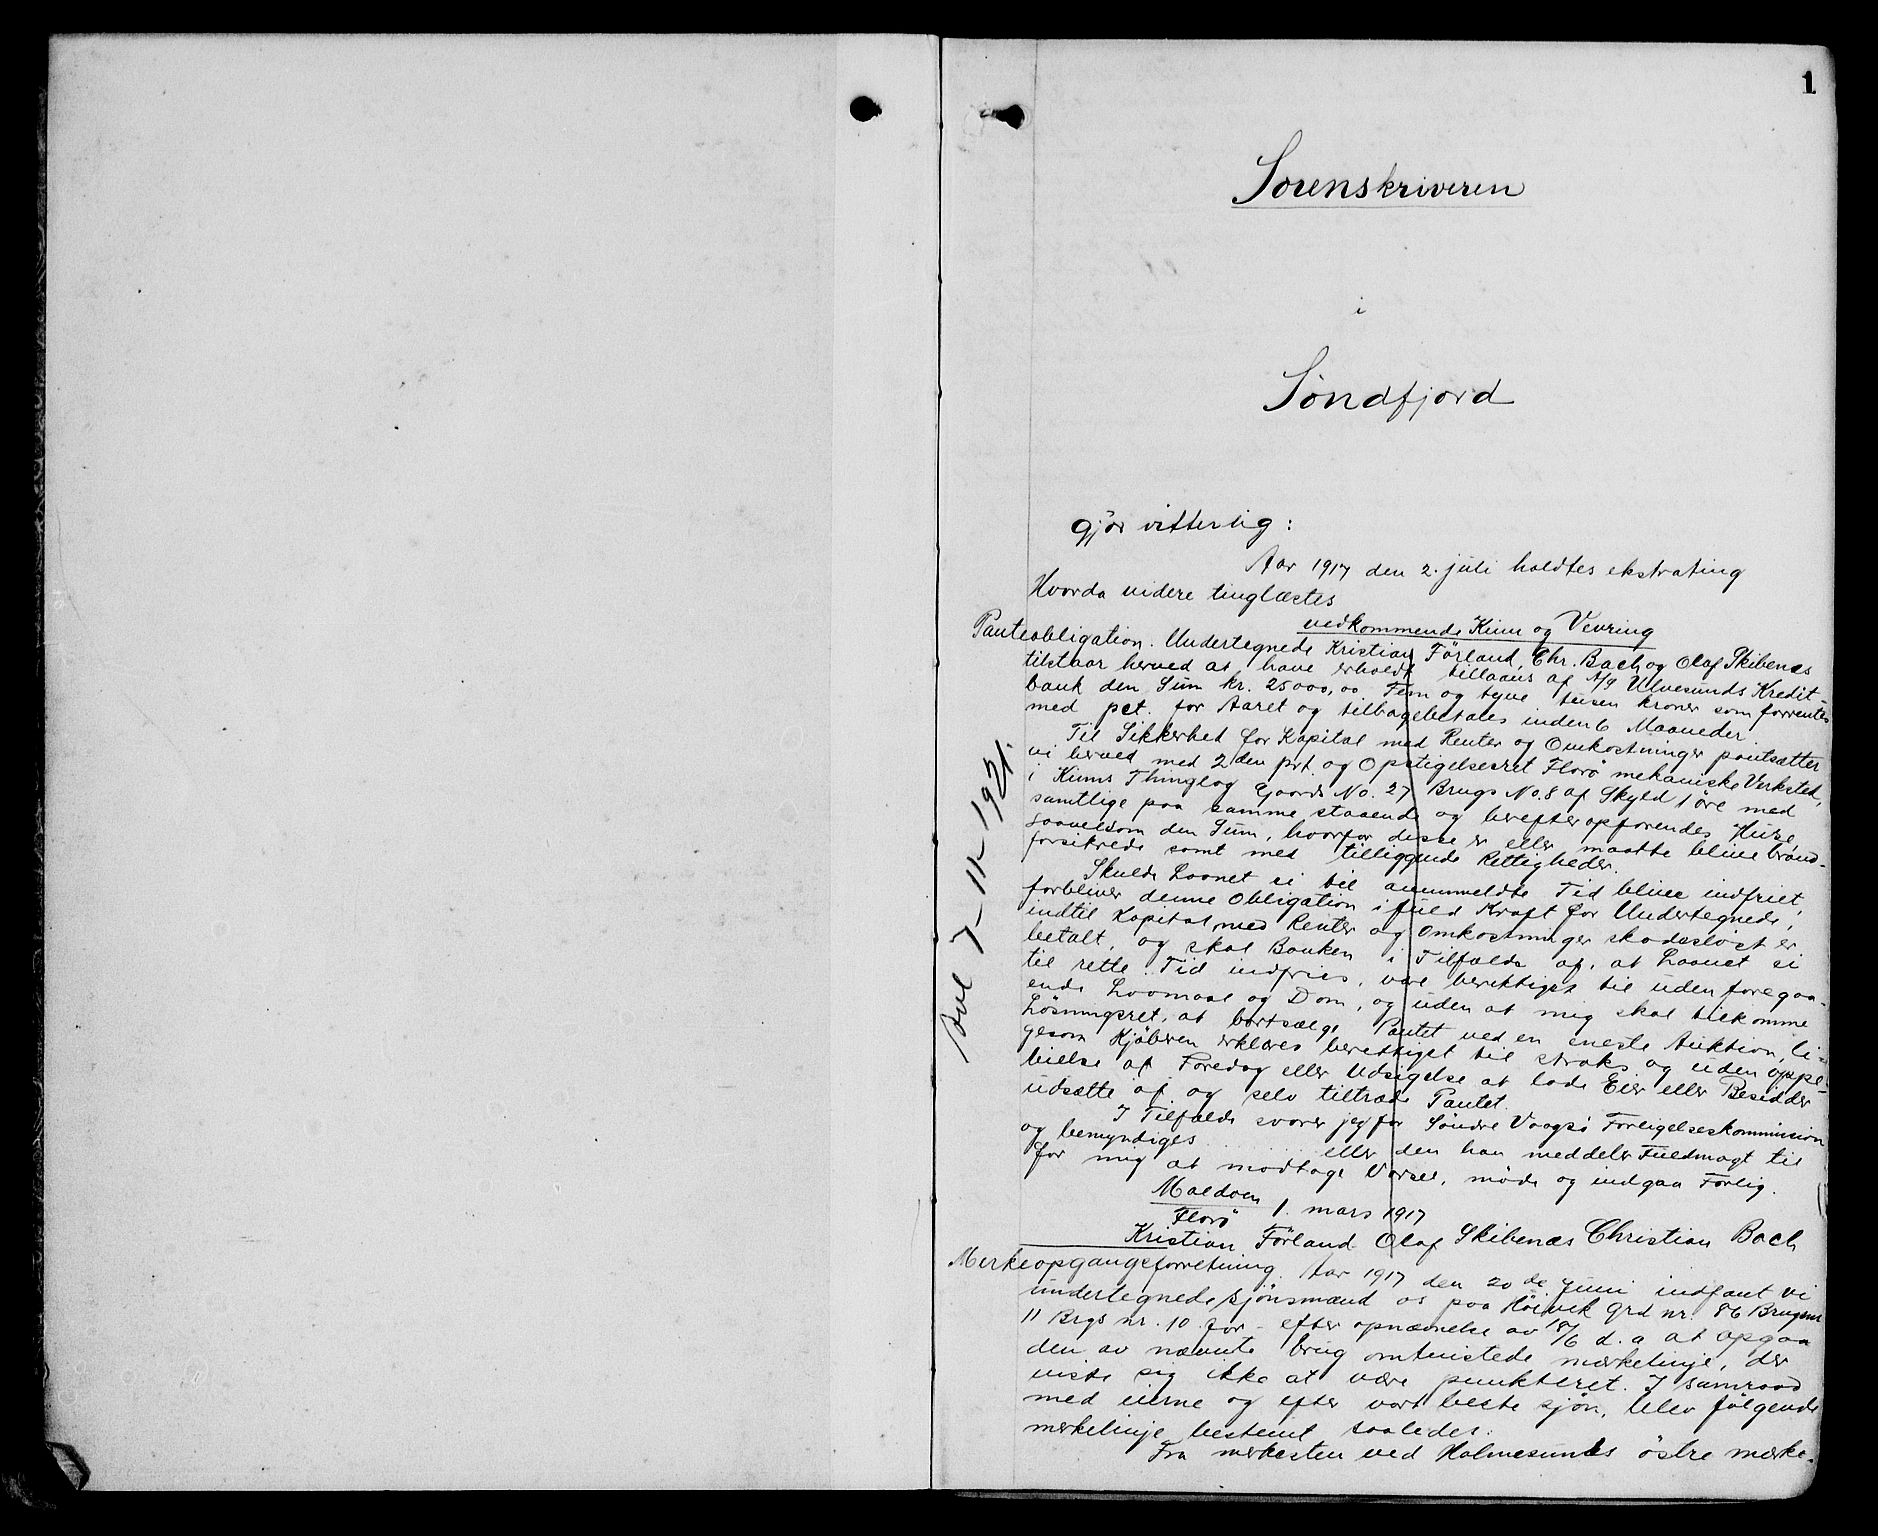 1
Sorenskriveren
i
Söndfjord
gjör vitterlig:
Aar 1917 den 2. juli holdtes ekstrating
Hvorda videre tinglæstes
vedkommende Kinn og Vevring
Panteobligation. Undertegnede Kristian Förland, Chr. Bach og Olaf Skibenæs
tilstaar herved at have erholdt tillaans af A/S Ulvesunds Kredit-
bank den Sum kr. 25000,00 Fem og tyve tusen kroner som forrentes
med pct. for Aaret og tilbagebetales inden 6 Maaneder
Til Sikkerhed for Kapital med Renter og Omkostninger pantsætter
vi herved med 2den prt. og Opstigelsesret Florö mekaniske Verksted,
i Kinns Thinglag Gaards No. 27 Brugs No. 8 af Skyld 1 öre med
samtlige paa samme staaende og herefter opförendes Huse,
saavelsom den Sum, hvorfor disse er eller maatte blive brand-
forsikrede samt med tilliggende Rettigheder.
Skulde Laanet ei til anmeldte Tid blive indfriet,
forbliver denne Obligation i fuld Kraft for Undertegnede,
indtil Kapital med Renter og Omkostninger skadesløst er
betalt, og skal Banken i Tilfælde af, at Laanet ei
til rette Tid indfries, være berettiget til uden foregaa-
ende Lovmaal og Dom, og uden at mig skal tilkomme
Løsningsret, at bortsælge Pantet ved en eneste Auktion, li-
gesom Kjöberen erklæres berettiget til straks og uden oppe-
bielse af Foredag eller Udsigelse at lade Eier eller Besidder
udsætte af og selv tiltræde Pantet.
I Tilfælde svarer jeg for Söndre Vaagsö Forligelseskommission
og bemyndiges ...... eller den han meddeler Fuldmagt til
for mig at modtage Varsel, møde og indgaa Forlig.
Maaløen
Florö 1. mars 1917
Kristian Förland Olaf Skibenæs Christian Bach
Avl 7-11-1921.
Merkeopgangsforretning. Aar 1917 den 20de juni indfant vi
undertegnede sjönsmænd os paa Höivik grd nr. 86 Brugsnr
11 Brgs nr. 10 for - efter opnævnelse av 18/6 d. a at opgaa
den av nævnte brug omtvistede mærkelinje, der
viste sig ikke at være punkteret. I samraad
med eierne og efter vort beste sjön, blev følgende
merkelinje bestemt saaledes:
Fra merkesten ved Holmesunds östre merke-